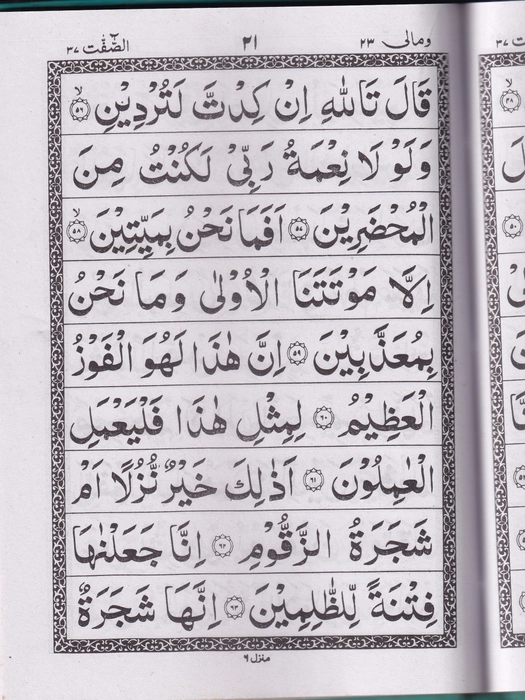 ومالى ٢٣
٢١
الصّٰٓفّٰت ٣٧
قَالَ تَاللّٰهِ اِنْ كِدْتَّ لَتُرْدِيْنِ ۙ٥٦
وَلَوْ لَا نِعْمَةُ رَبِّيْ لَكُنْتُ مِنَ
الْمُحْضَرِيْنَ ٥٧ اَفَمَا نَحْنُ بِمَيِّتِيْنَ ۙ٥٨
اِلَّا مَوْتَتَنَا الْاُوْلٰى وَمَا نَحْنُ
بِمُعَذَّبِيْنَ ٥٩ اِنَّ هٰذَا لَهُوَ الْفَوْزُ
الْعَظِيْمُ ٦٠ لِمِثْلِ هٰذَا فَلْيَعْمَلِ
الْعٰمِلُوْنَ ٦١ اَذٰلِكَ خَيْرٌ نُّزُلًا اَمْ
شَجَرَةُ الزَّقُّوْمِ ٦٢ اِنَّا جَعَلْنٰهَا
فِتْنَةً لِّلظّٰلِمِيْنَ ٦٣ اِنَّهَا شَجَرَةٌ
منزل ٦